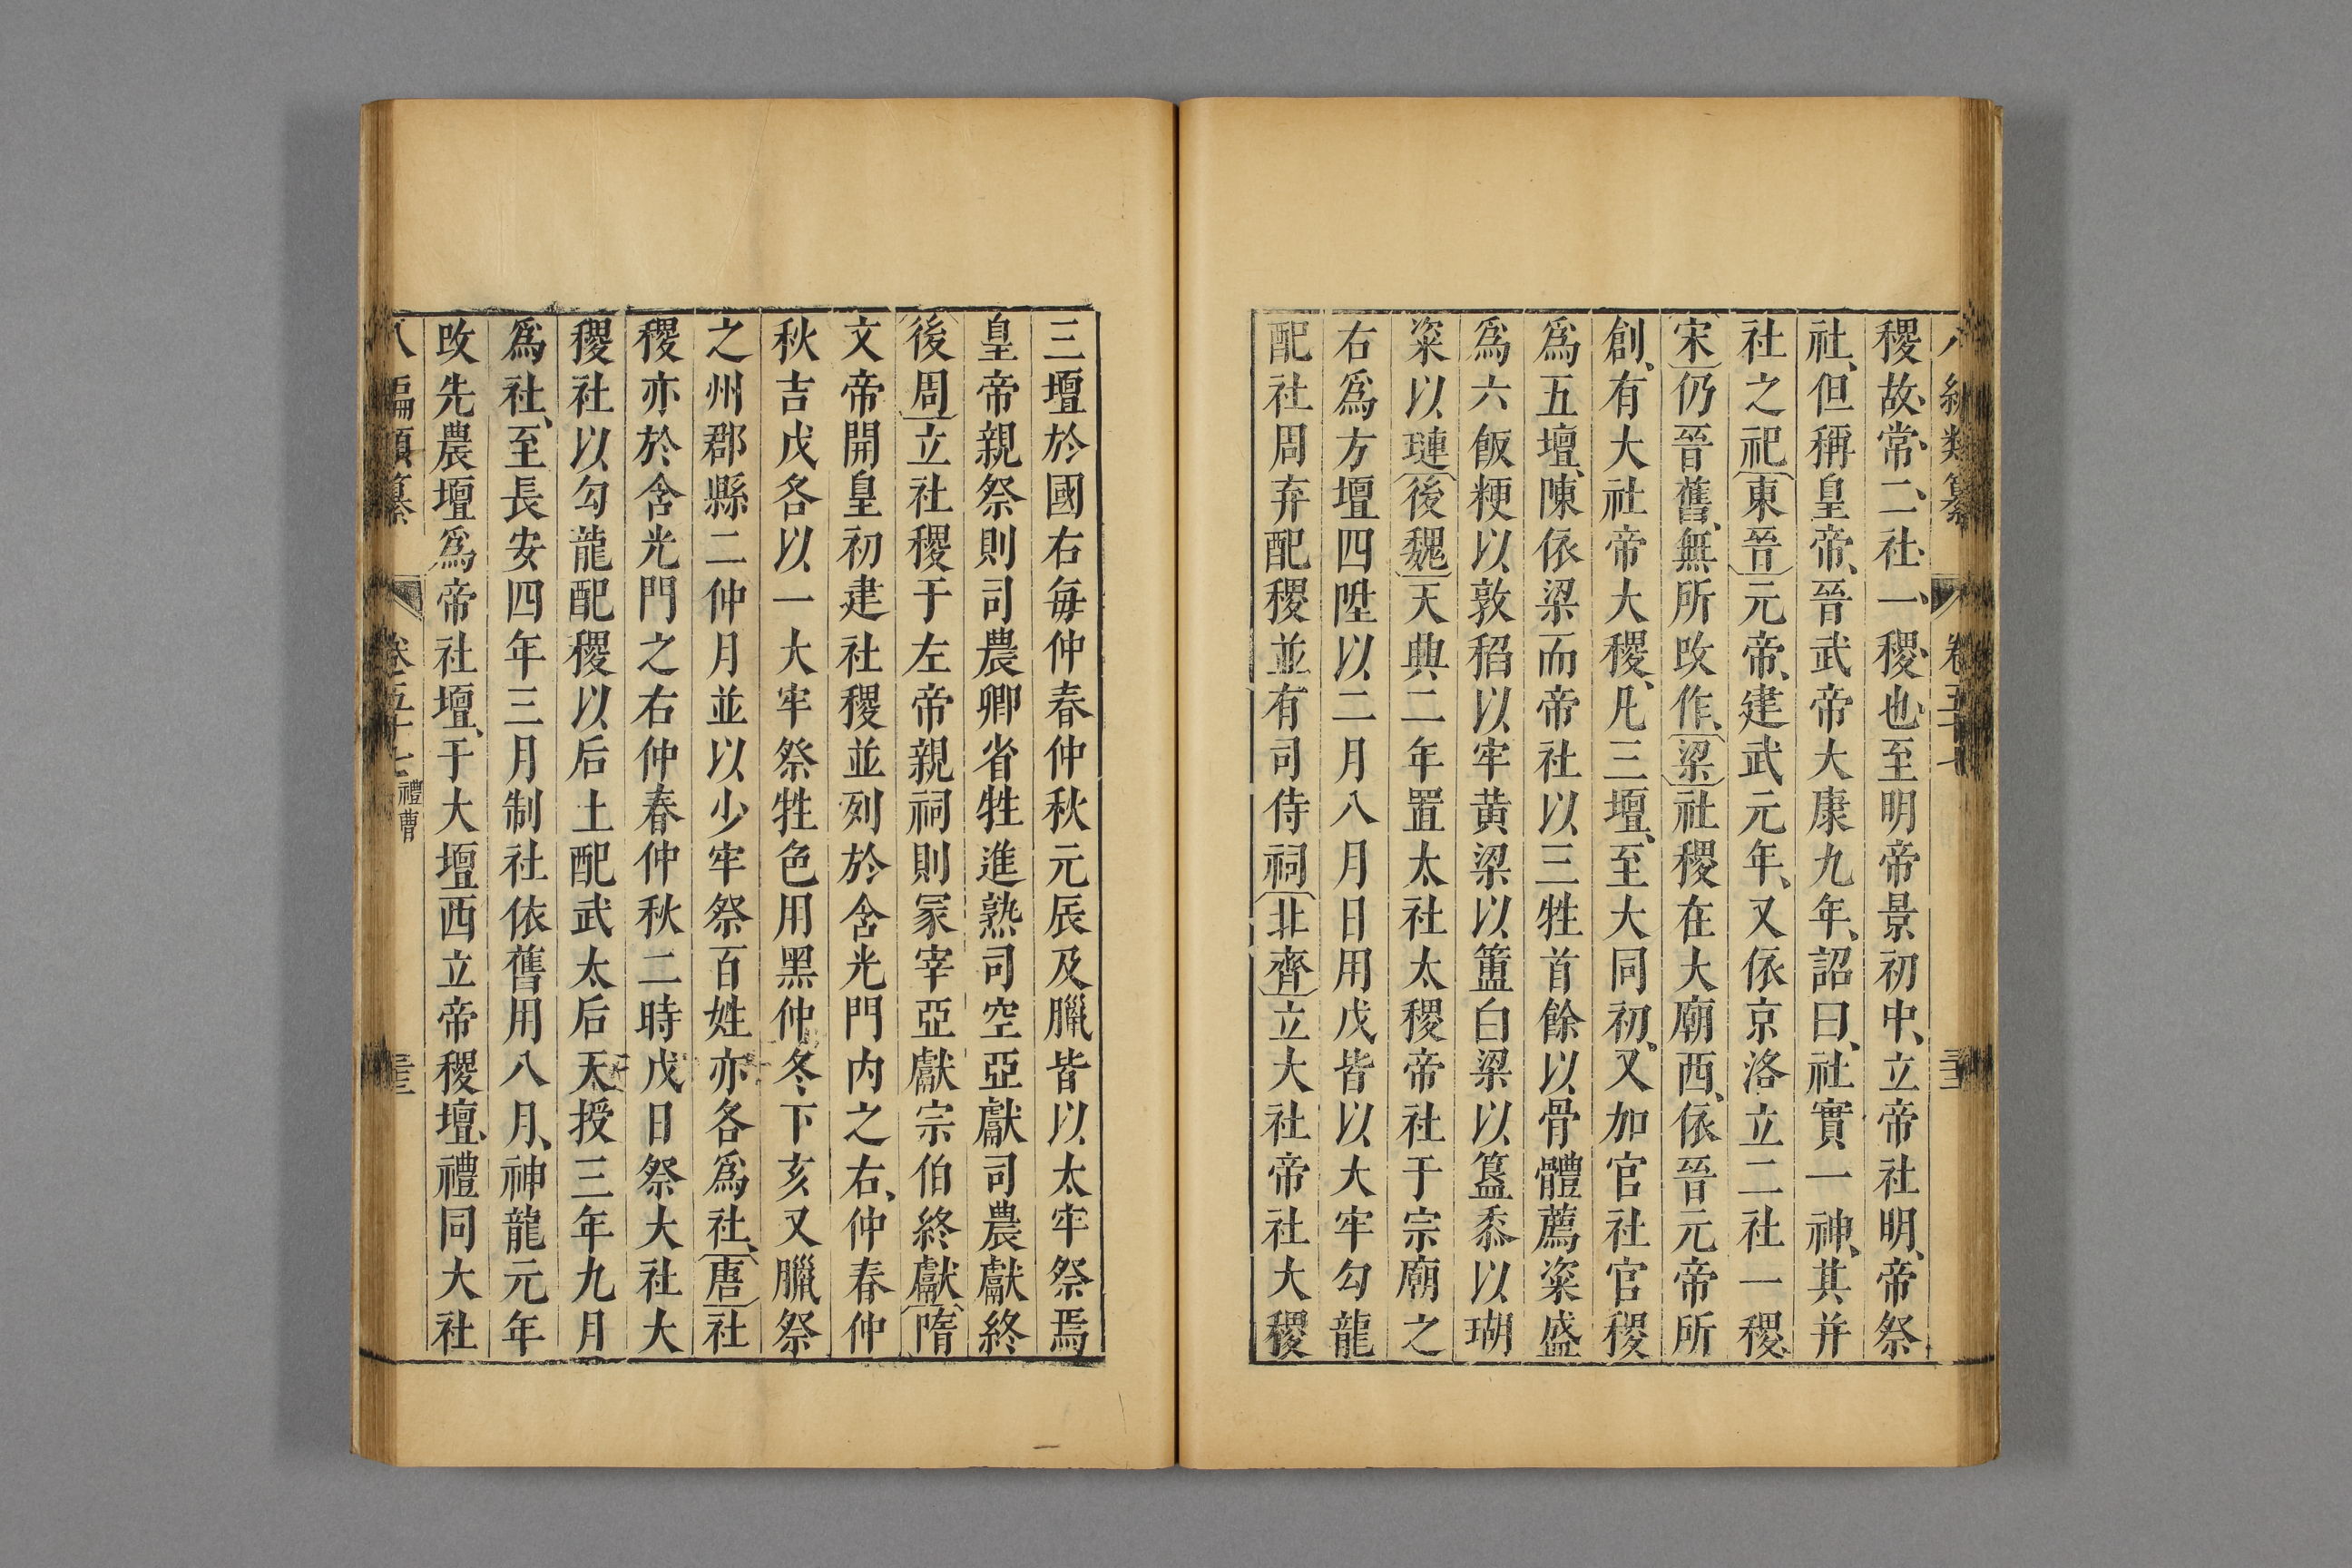 稷故、常、二、社、一、稷、也、至明帝景初中、立帝社明、帝祭
社、但稱皇帝、晉武帝大康九年、詔曰、社實一神、其并
社之祀東晉元帝、建武元年、又依京洛立二社一稷、
宋仍晉舊、無所改作、梁社稷在大廟西、依晉元帝所
創、有大社帝大稷、凡三壇、至大同初、又加官社官稷
爲五壇、陳依梁而帝社以三牲首餘以骨體薦粢盛
爲六飯粳以敦稻以牢黃梁以簠白梁以簋黍以瑚
粢以璉後魏天典二年置太社太稷帝社于宗廟之
右爲方壇四陛以二月八月日用戊皆以大牢勾龍
配社周弃配稷並有司侍祠北齊立大社帝社大稷
三壇於國右每仲春仲秋元辰及臘皆以太牢祭焉
皇帝親祭則司農卿省牲進熟司空亞獻司農獻終
後周立社稷于左帝親祠則冡宰亞獻宗伯終獻隋
文帝開皇初建社稷並列於含光門内之右、仲春仲
秋吉戊各以一大牢祭牲色用黑仲冬下亥又臘祭
之州郡縣二仲月並以少牢祭百姓亦各爲社、唐社
稷亦於含光門之右仲春仲秋二時戊日祭大社大
稷社以勾龍配稷以后土配武太后天授三年九月
爲社、至長安四年三月制社依舊用八月、神龍元年
改先農壇爲帝社壇、于大壇西立帝稷壇、禮同大社
八編類纂 卷五十七 禮曹